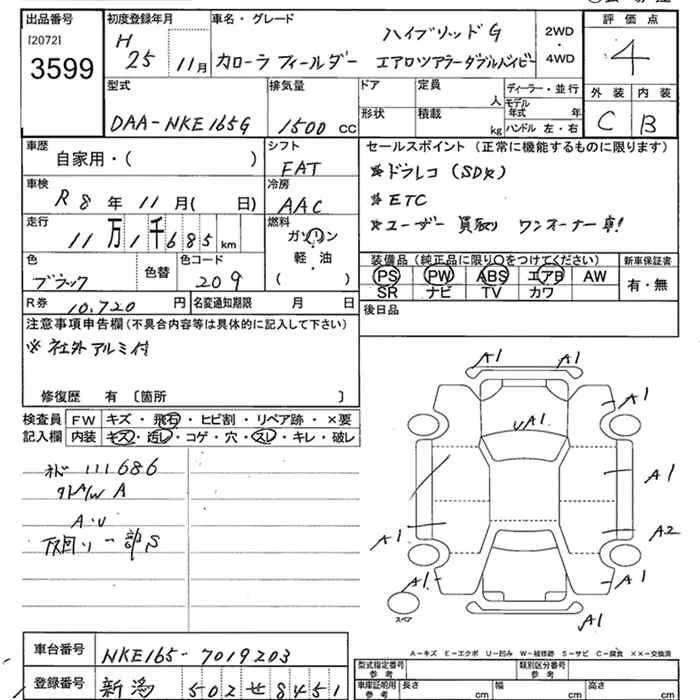 出品番号 初度登録年月 車名・グレード 評価点
[2072] H ハイブリッドG 2WD
3599 25 11月 カローラフィールダー エアロツアラーダブルバイビー 4WD 4
型式 排気量 ドア 定員 ディーラー・並行 外装 内装
人 モデル年式 年
DAA-NKE165G 1500cc 形状 積載 kg ハンドル 左・右 C B
車歴 シフト セールスポイント(正常に機能するものに限ります)
自家用・( ) FAT ※ドラレコ(SD欠)
車検 冷房 ※ETC
R8年11月( 日) AAC ※ユーザー買取り ワンオーナー車!
走行 燃料
11万1千685km ガソリン
軽・油
( )
色 色替 色コード 装備品(純正品に限り○をつけてください) 新車保証書
ブラック 209 PS PW ABS エアB AW 有・無
SR ナビ TV カワ
R券 10,720円 名変通知期限 月 日 後日品
注意事項申告欄(不具合内容等は具体的に記入して下さい)
※社外アルミ付
修復歴 有〔箇所 〕
検査員 FW キズ・飛石・ヒビ割・リペア跡・×要
記入欄 内装 キズ・汚レ・コゲ・穴・スレ・キレ・破レ
メド 111686
外A/W A
A・U
下回り一部S
A1 A1
A1
UA1
A1
A1 A2
A1 A1
A1
スペア
A-キズ E-エクボ U-凹み W-補修跡 S-サビ C-腐食 ××-交換済
車台番号 NKE165-7019203
型式指定番号 参考 類別区分番号 参考
登録番号 新潟 502 せ 8451
車庫証明用 参考 長さ cm 幅 cm 高さ cm